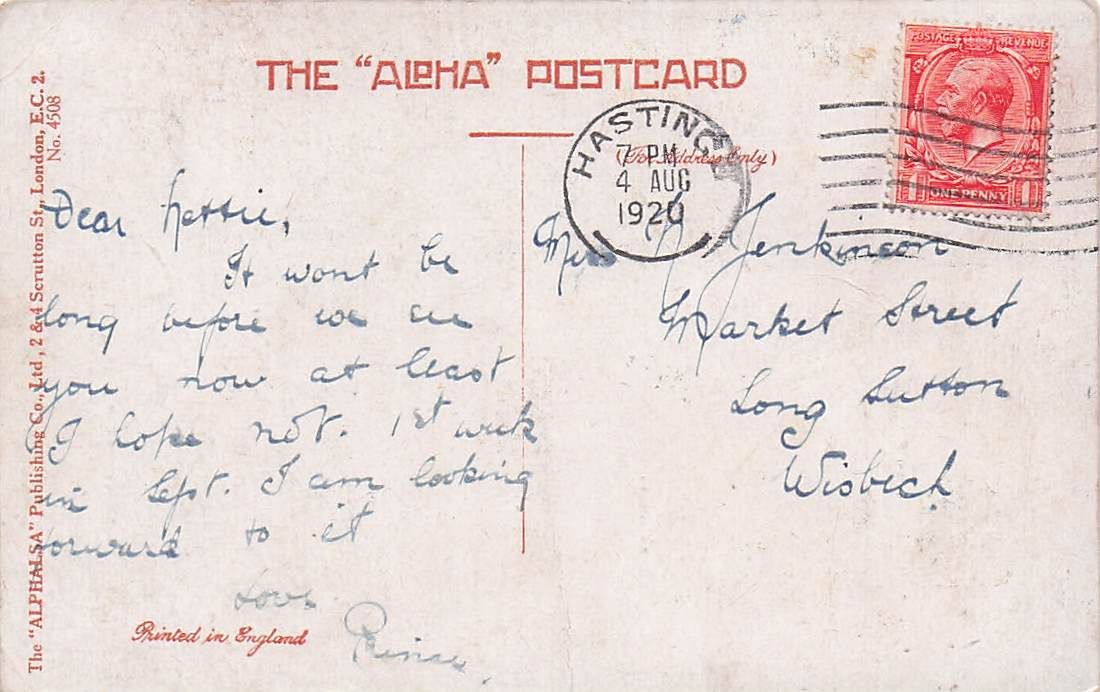 THE "ALPHA" POSTCARD
(For Address Only)
HASTINGS
7 PM
4 AUG
1920
POSTAGE REVENUE
1 ONE PENNY 1
Dear Hettie,
It wont be
long before we see
you now at least
I hope not. 1st week
in Sept. I am looking
forward to it
Love
Miss Jenkinson
Market Street
Long Sutton
Wisbech
Printed in England
The "ALPHALSA" Publishing Co., Ltd, 2 & 4 Scrutton St., London, E.C. 2.
No. 4508